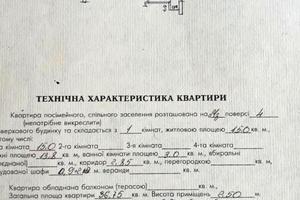 2
ТЕХНІЧНА ХАРАКТЕРИСТИКА КВАРТИРИ
Квартира посімейного, спільного заселення розташована на поверсі 4
(непотрібне викреслити)
верхового будинку та складається з 1 кімнат, житловою площею 15.0 кв. м,
кімната 15.0 2-га кімната 3-я кімната 4-та кімната
площею 13.8 кв. м, ванної кімнати площею 3.0 кв. м, вбиральні
кв. м, коридор 2.85 кв. м, перегородкою кв. м,
шафи 0.92 м, веранди кв. м.
Квартира обладнана балконом (терасою) кв. м,
Загальна площа квартири 36.75 кв. м. Висота приміщень 2.50 м.